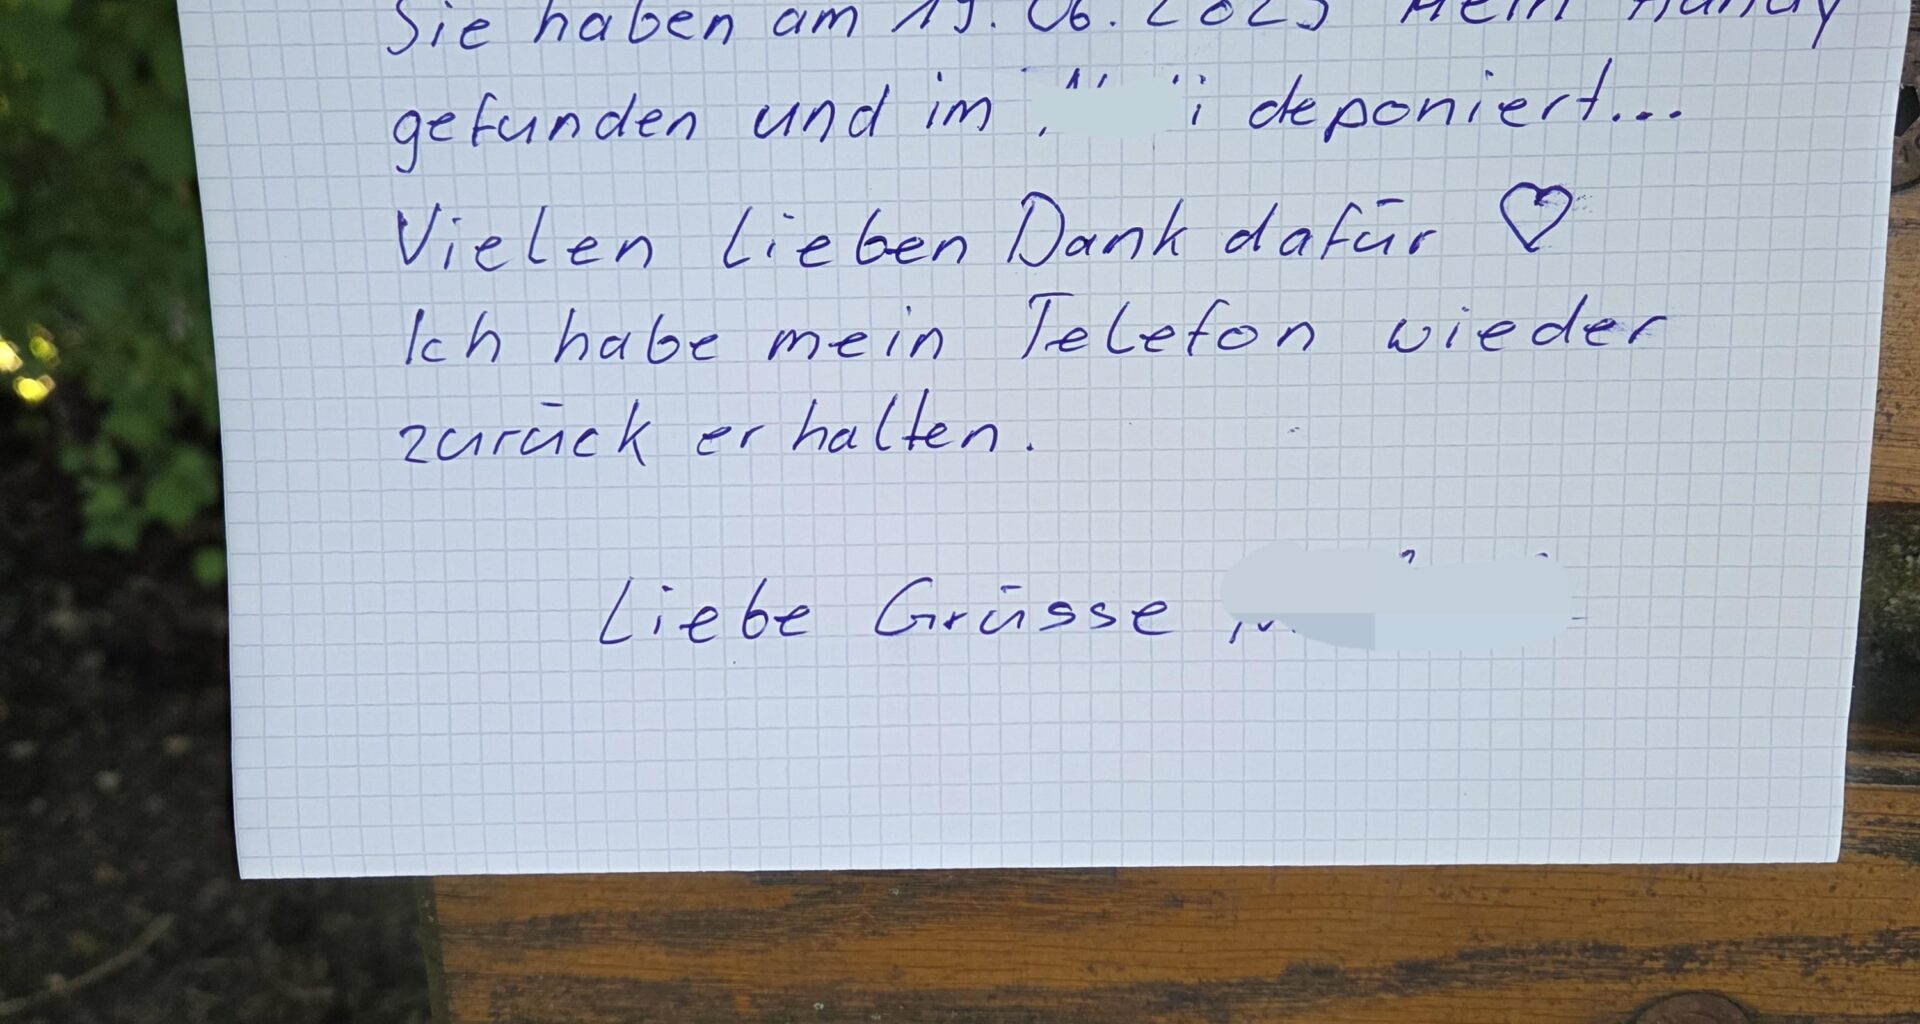 Sie haben am 19.06.2025 Mein Handy
gefunden und im deponiert...
Vielen lieben Dank dafür ♡
Ich habe mein Telefon wieder
zurück erhalten.
Liebe Grüsse